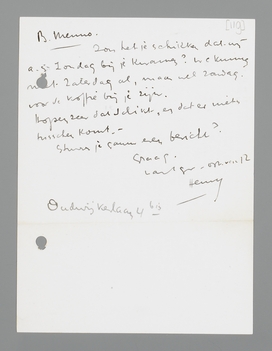 [119]
B. Menno.
Zou het je schikken dat wij
a.s. Zondag bij je kwamen? We kunnen
niet Zaterdag al, maar wel Zondag
voor de koffie bij je zijn.
Hopen dat dat schikt, en dat er niets
tusschen komt. –
Stuur je gauw even bericht?
Graag.
Henny
Oudwijkerlaan 4 bis